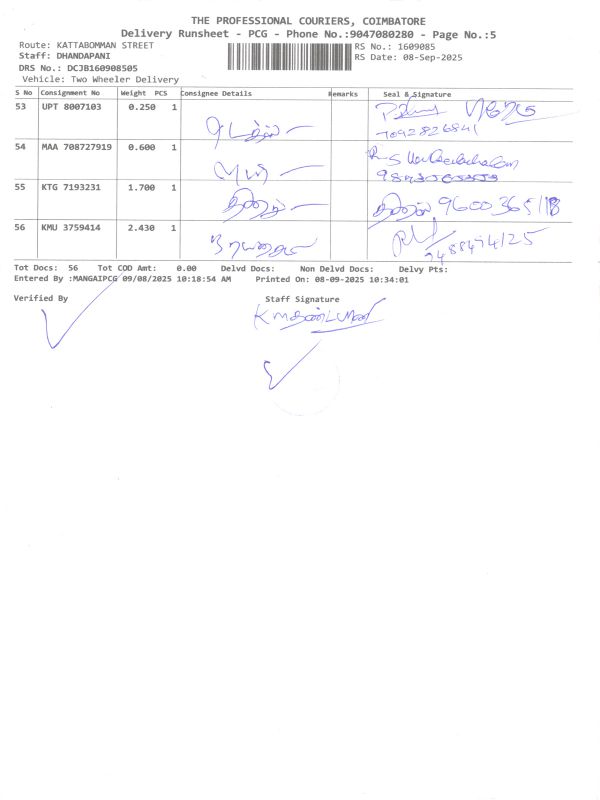 THE PROFESSIONAL COURIERS, COIMBATORE
Delivery Runsheet - PCG - Phone No.:9047080280 - Page No.:5
Route: KATTABOMMAN STREET RS No.: 1609085
Staff: DHANDAPANI RS Date: 08-Sep-2025
DRS No.: DCJB160908505
Vehicle: Two Wheeler Delivery
S No Consignment No Weight PCS Consignee Details Remarks Seal & Signature
53 UPT 8007103 0.250 1
7092826841
54 MAA 708727919 0.600 1
55 KTG 7193231 1.700 1
9600365118
56 KMU 3759414 2.430 1
Tot Docs: 56 Tot COD Amt: 0.00 Delvd Docs: Non Delvd Docs: Delvy Pts:
Entered By :MANGAIPCG 09/08/2025 10:18:54 AM Printed On: 08-09-2025 10:34:01
Verified By Staff Signature